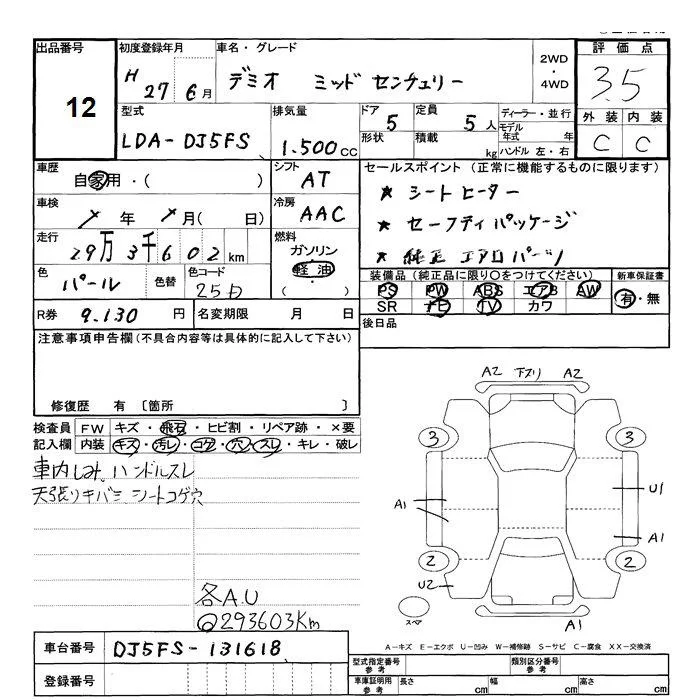 出品番号
12
初度登録年月
H 27年 6月
車名・グレード
デミオ ミッドセンチュリー
2WD
・
4WD
評価点
3.5
外装 内装
C C
型式
LDA-DJ5FS
排気量
1.500cc
ドア 5
形状
定員 5人
積載 kg
ディーラー・並行
モデル年式 年
ハンドル 左・右
車歴
自家用・( )
シフト
AT
車検
年 月( 日)
冷房
AAC
走行
29万3千602km
燃料
ガソリン
軽油
( )
色
パール
色替
色コード
25D
R券 9.130円
名変期限 月 日
セールスポイント(正常に機能するものに限ります)
★ シートヒーター
★ セーフティパッケージ
★ 純正エアロパーツ
装備品(純正品に限り○をつけてください)
新車保証書
PS PW ABS エアB AW
SR ナビ TV カワ
有・無
後日品
注意事項申告欄(不具合内容等は具体的に記入して下さい)
修復歴 有〔箇所 〕
検査員記入欄
FW キズ・飛石・ヒビ割・リペア跡・×要
内装 キズ・汚レ・コゲ・穴・スレ・キレ・破レ
車内しみ、ハンドルスレ
天張りキバミ シートコゲ穴
各A.U
@293603Km
A2 下スリ A2
3 3
A1 U1
A1
2 2
U2
スペア
A1
A-キズ E-エクボ U-凹み W-補修跡 S-サビ C-腐食 XX-交換済
車台番号 DJ5FS-131618
登録番号
型式指定番号
参考
類別区分番号
参考
車庫証明用
参考
長さ cm 幅 cm 高さ cm